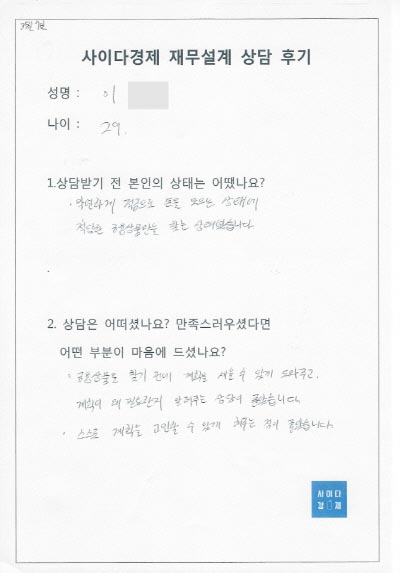 사이다경제 재무설계 상담 후기
성명 : 이
나이 : 29.
1.상담받기 전 본인의 상태는 어땠나요?
· 막연하게 적금으로 돈을 모으는 상태에
적당한 금융상품만을 찾는 상태였습니다
2. 상담은 어떠셨나요? 만족스러우셨다면
어떤 부분이 마음에 드셨나요?
· 금융상품을 찾기 전에 계획을 세울 수 있게 도와주고,
계획이 왜 필요한지 알려주는 상담이 좋았습니다.
· 스스로 계획을 고민할 수 있게 해주는 점이 좋았습니다.
사이다
경제